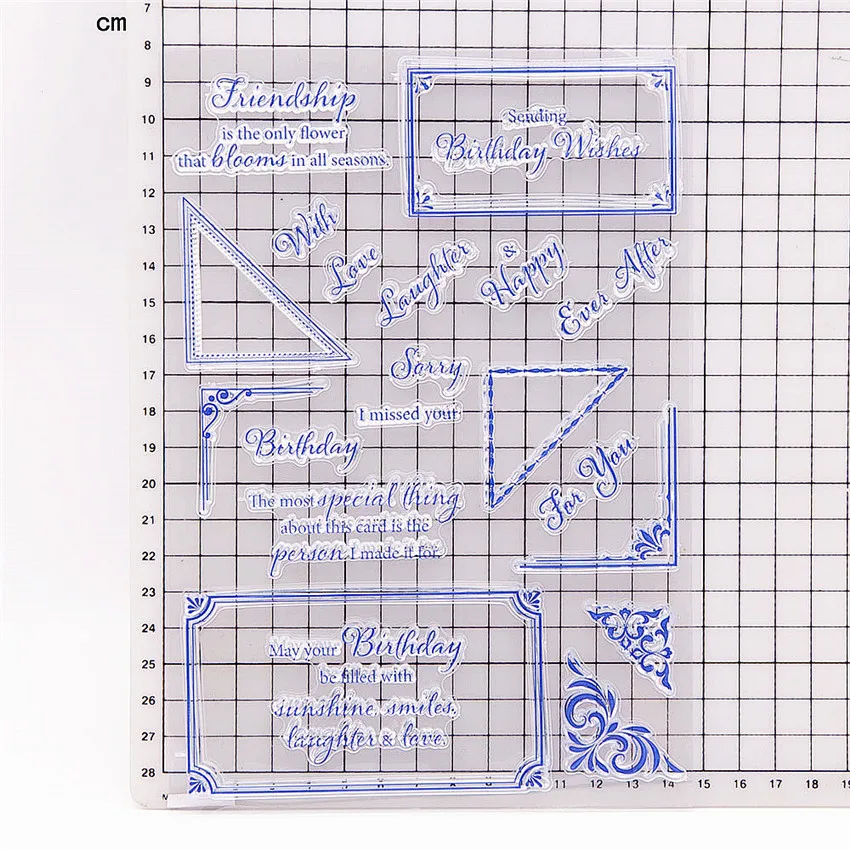 cm
7
8
9
10
11
12
13
14
15
16
17
18
19
20
21
22
23
24
25
26
27
28
Friendship
is the only flower
that blooms in all seasons.
Sending
Birthday Wishes
With
Love
Laughter
&
Happy
Ever After
Sorry
I missed your
Birthday
For You
The most special thing
about this card is the
person I made it for.
May your Birthday
be filled with
sunshine, smiles,
laughter & love.
11 12 13 14 15 16 17 18 19